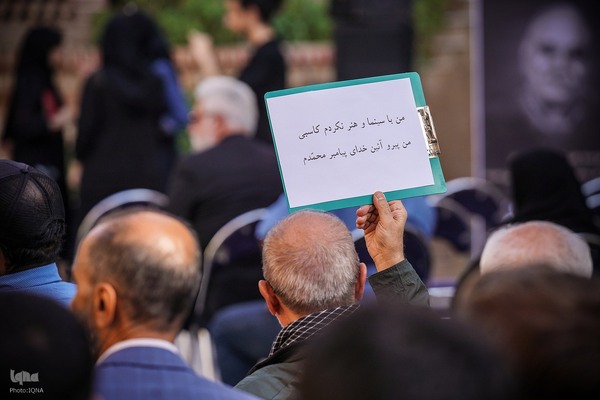 من با سینما و هنر نکردم کاسبی
من پیرو آئین خدای پیامبر محمّدم
iqna
Photo: IQNA